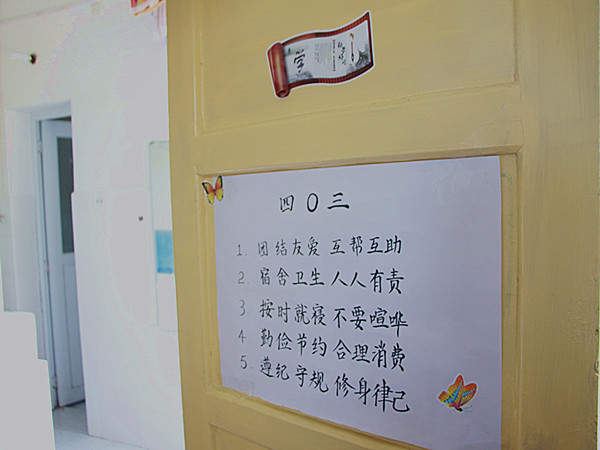 学
四０三
1. 团结友爱 互帮互助
2. 宿舍卫生 人人有责
3 按时就寝 不要喧哗
4 勤俭节约 合理消费
5. 遵纪守规 修身律己